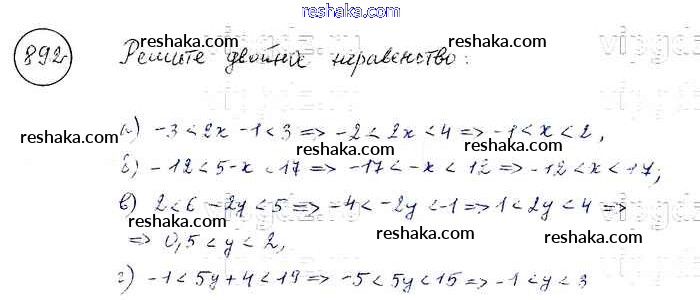 reshaka.com
892. Решите двойные неравенство:
а) -3 < 2x - 1 < 3 => -2 < 2x < 4 => -1 < x < 2,
б) -12 < 5 - x < 17 => -17 < -x < 12 => -12 < x < 17;
в) 2 < 6 - 2y < 5 => -4 < -2y < -1 => 1 < 2y < 4 =>
=> 0,5 < y < 2,
г) -1 < 5y + 4 < 19 => -5 < 5y < 15 => -1 < y < 3
reshaka.com reshaka.com reshaka.com
reshaka.com reshaka.com reshaka.com
reshaka.com reshaka.com reshaka.com